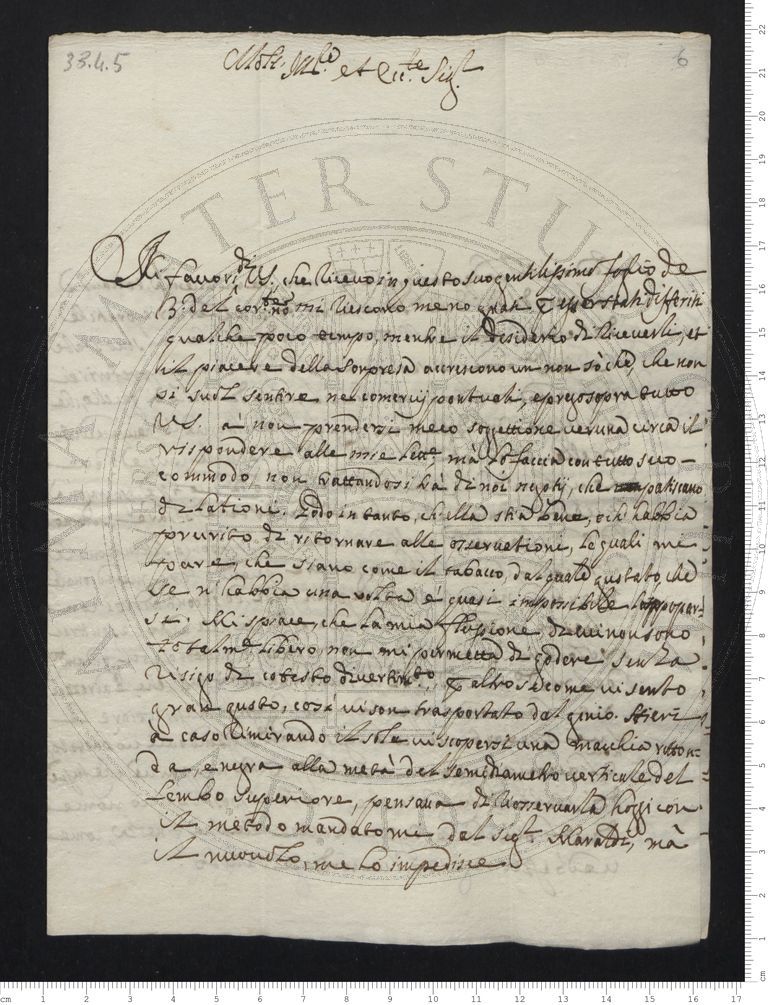 33.4.5
6
Molt. Ill.e et Ecc.te Sig.r
Il favor di VS. che ricevo in questo suo gentilissimo foglio de
3. del cor.te non mi riescono meno grati p esser stati differiti
qualche poco tempo, mentre il desiderio di riceverli, et
il piacere della sorpresa accrescono un non sò che, che non
si suol sentire ne comercij pontuali, e prego sopra tutto
VS. à non prendersi meco soggettione veruna circa il
rispondere alle mie lett.e, mà lo faccia con tutto suo
commodo, non trattandosi trà di noi negotij, che patiscano
dilationi. Godo in tanto, ch'ella stia bene, e ch'habbia
prurito di ritornare alle osservationi, le quali mi
pare, che siano come il tabacco, dal quale gustato, che
se n'habbia una volta è quasi imposibile
si. Mi spiace, che la mia flussione di cui non sono
totalm.te libero, non mi permetta di godere senza
risigo di cotesto divertim.to, p altro si come vi sento
gran gusto, così vi son trasportato dal genio. Hieri
à caso rimirando il sole vi scopersi una macchia roton-
da, e negra alla metà del semidiametro verticale del
lembo superiore, pensava di riosservarla hoggi con
il metodo mandatomi dal Sig.r Maraldi, mà
il nuvolo, me lo impedisce
MATER STU